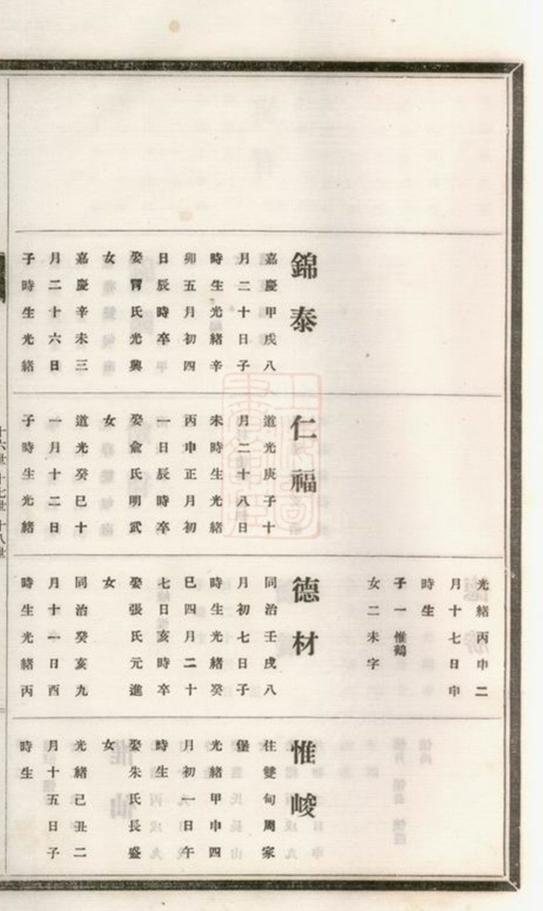 錦泰
嘉慶甲戌八
月二十日子
時生光緒辛
卯五月初四
日辰時卒
娶胥氏光興
女
嘉慶辛未三
月二十六日
子時生光緒
仁福
道光庚子十
月二十八日
未時生光緒
丙申正月初
一日辰時卒
娶兪氏明武
女
道光癸巳十
一月十二日
子時生光緒
光緒丙申二
月十七日申
時生
子一惟鶴
女二未字
德材
同治壬戌八
月初七日子
時生光緒癸
巳四月二十
七日亥時卒
娶張氏元進
女
同治癸亥九
月十一日酉
時生光緒丙
惟峻
住雙甸周家
堡
光緒甲申四
月初一日午
時生
娶朱氏長盛
女
光緒己丑二
月十五日子
時生
十六世 十七世 十八世